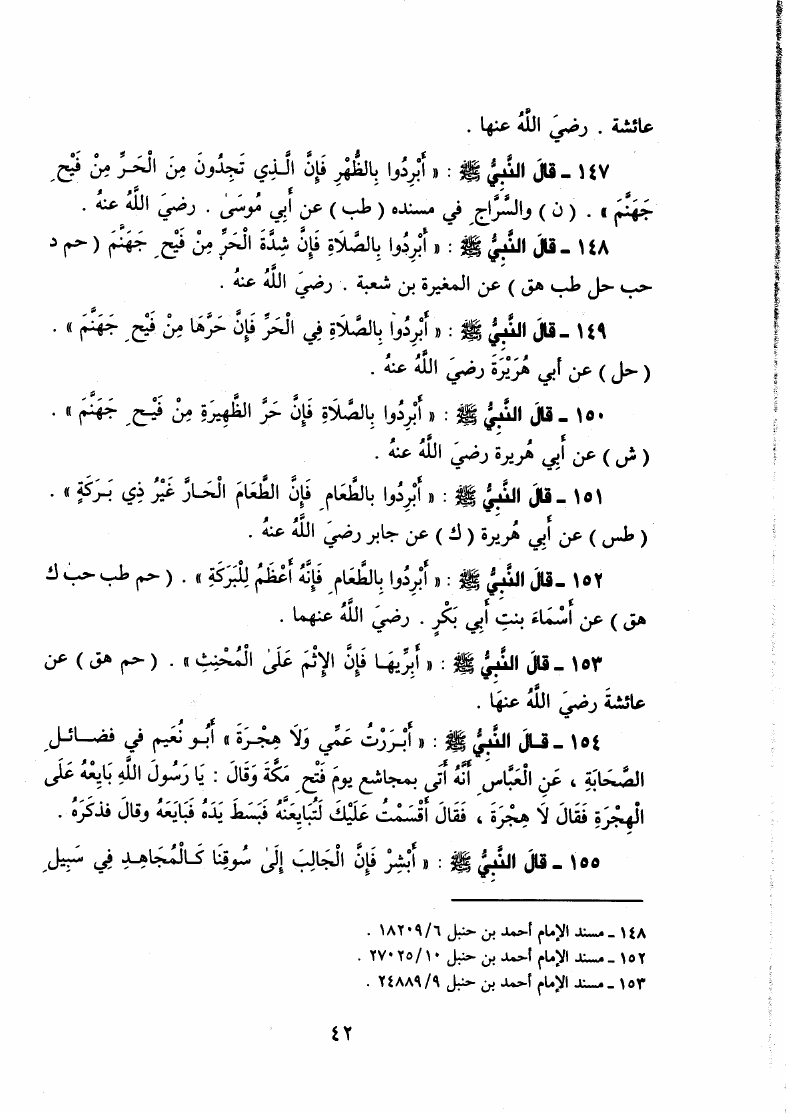 عائشة . رضيَ اللَّهُ عنها .
١٤٧ ـ قالَ النَّبِيُّ ﷺ : « أَبْرِدُوا بِالظُّهْرِ فَإِنَّ الَّذِي تَجِدُونَ مِنَ الْحَرِّ مِنْ فَيْحِ
جَهَنَّمَ » . ( ن ) والسَّرَّاجِ في مسنده ( طب ) عن أَبي مُوسَىٰ . رضيَ اللَّهُ عنهُ .
١٤٨ ـ قالَ النَّبِيُّ ﷺ : « أَبْرِدُوا بِالصَّلَاةِ فَإِنَّ شِدَّةَ الْحَرِّ مِنْ فَيْحِ جَهَنَّمَ ( حم د
حب حل طب هق ) عن المغيرة بن شعبة . رضيَ اللَّهُ عنهُ .
١٤٩ ـ قالَ النَّبِيُّ ﷺ : « أَبْرِدُوا بِالصَّلَاةِ فِي الْحَرِّ فَإِنَّ حَرَّهَا مِنْ فَيْحِ جَهَنَّمَ » .
( حل ) عن أبي هُرَيْرَةَ رضيَ اللَّهُ عنهُ .
١٥٠ ـ قالَ النَّبِيُّ ﷺ : « أَبْرِدُوا بِالصَّلَاةِ فَإِنَّ حَرَّ الظَّهِيرَةِ مِنْ فَيْحِ جَهَنَّمَ » .
( ش ) عن أَبِي هُريرة رضيَ اللَّهُ عنهُ .
١٥١ ـ قالَ النَّبِيُّ ﷺ : « أَبْرِدُوا بِالطَّعَامِ فَإِنَّ الطَّعَامَ الْحَارَّ غَيْرُ ذِي بَرَكَةٍ » .
( طس ) عن أَبي هُريرة ( ك ) عن جابر رضيَ اللَّهُ عنهُ .
١٥٢ ـ قالَ النَّبِيُّ ﷺ : « أَبْرِدُوا بِالطَّعَامِ فَإِنَّهُ أَعْظَمُ لِلْبَرَكَةِ » . ( حم طب حب ك
هق ) عن أَسْمَاءَ بنتِ أَبِي بَكْرٍ . رضيَ اللَّهُ عنهما .
١٥٣ ـ قالَ النَّبِيُّ ﷺ : « أَبِرِّيهَا فَإِنَّ الإِثْمَ عَلَىٰ الْمُحْنِثِ » . ( حم هق ) عن
عائشةَ رضيَ اللَّهُ عنهَا .
١٥٤ ـ قالَ النَّبِيُّ ﷺ : « أَبْرَرْتُ عَمِّي وَلاَ هِجْرَةَ » أَبُو نُعَيم في فضائلِ
الصَّحَابَةِ ، عَنِ الْعَبَّاسِ أَنَّهُ أَتى بمجاشع يومَ فَتْحِ مَكَّةَ وَقَالَ : يَا رَسُولَ اللَّهِ بَايِعْهُ عَلَى
الْهِجْرَةِ فَقَالَ لاَ هِجْرَةَ ، فَقَالَ أَقْسَمْتُ عَلَيْكَ لَتُبَايِعَنَّهُ فَبَسَطَ يَدَهُ فَبَايَعَهُ وقال فذكرَهُ .
١٥٥ ـ قالَ النَّبِيُّ ﷺ : « أَبْشِرْ فَإِنَّ الْجَالِبَ إِلَىٰ سُوقِنَا كَالْمُجَاهِدِ فِي سَبِيلِ
١٤٨ ـ مسند الإمام أحمد بن حنبل ١٨٢٠٩/٦ .
١٥٢ ـ مسند الإمام أحمد بن حنبل ٢٧٠٢٥/١٠ .
١٥٣ ـ مسند الإمام أحمد بن حنبل ٢٤٨٨٩/٩ .
٤٢